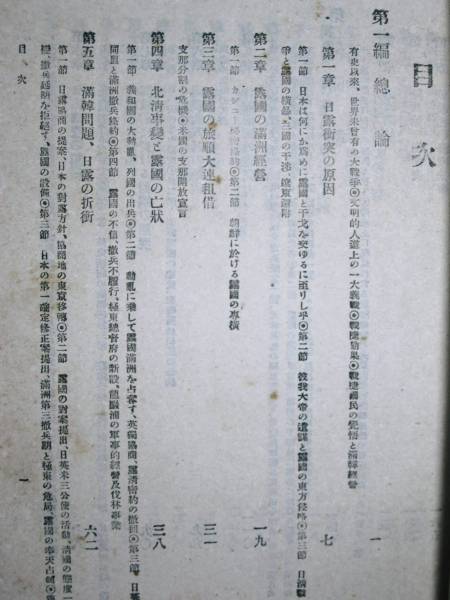 目次
第一編 總論 一
有史以來、世界未曾有の大戰爭◉文明的人道上の一大義戰◉戰捷の效果◉戰捷國民の覺悟と滿韓經營
第一章 日露衝突の原因 七
第一節 日本は何にか爲めに露國と干戈を交ゆるに至りし乎◉第二節 彼我大帝の遺謀と露國の東方侵略◉第三節 日清戰
爭と露國の橫暴、三國の干涉、遼東還附
第二章 露國の滿洲經營 一九
第一節 カシニー密約◉第二節 朝鮮に於ける露國の專橫
第三章 露國の旅順大連租借 三一
支那分割の危機◉米國の支那開放宣言
第四章 北清事變と露國の亡狀 三八
第一節 義和團の大騷亂、列國の出兵◉第二節 動亂に乘して露國滿洲を占奪す、英獨協商、露清密約の撤回◉第三節 日英
同盟と滿洲撤兵條約◉第四節 露國の不信、撤兵不履行、極東總督府の新設、龍巖浦の軍事的經營及伐林事業
第五章 滿韓問題、日露の折衝 六二
第一節 日露協商の提案、日本の對露方針、協商地の東京移轉◉第二節 露國の對案提出、日英米三公使の活動、清國の態度一
變、撤兵延期を拒絕す、露國の設備◉第三節 日本の第一確定修正案提出、滿洲第三撤兵期と極東の危局、露國の奉天占領◉第
目次 一